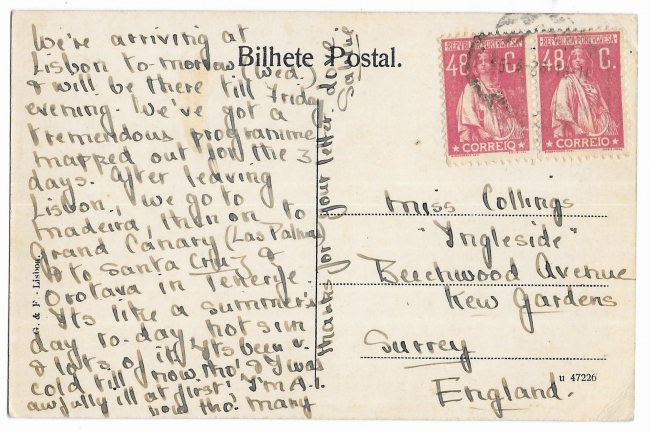 Bilhete Postal.
We're arriving at
Lisbon to-morrow (Wed.)
& will be there till Friday
evening. We've got a
tremendous programme
mapped out for the 3
days. After leaving
Lisbon, we go to
Madeira, then on to
Grand Canary (Las Palmas)
& to Santa Cruz &
Orotava in Tenerife.
Its like a summer's
day to-day, hot sun
& lots of it. Its been v.
cold till now, tho' & I was
awfully ill at first. I'm A.1.
now tho'. Many
thanks for your letter
love
REPUBLICA PORTUGUESA
48 C.
CORREIO
REPUBLICA PORTUGUESA
48 C.
CORREIO
Miss Collings
"Ingleside"
Beechwood Avenue
Kew Gardens
Surrey
England.
G. & F. - Lisbon.
u 47226